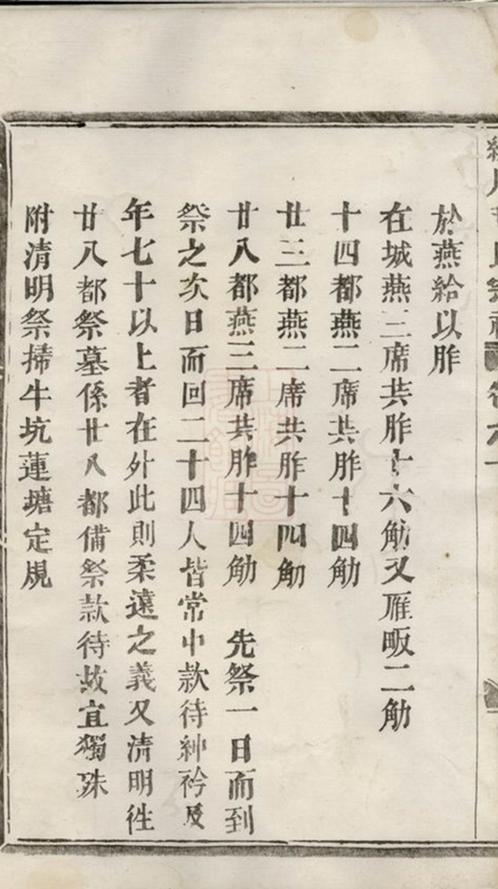 於燕給以胙
在城燕三席共胙十六觔又雁畈二觔
十四都燕二席共胙十四觔
廿三都燕二席共胙十四觔
廿八都燕三席共胙十四觔 先祭一日而到
祭之次日而回二十四人皆常中款待紳衿及
年七十以上者在外此則柔遠之義又清明徃
廿八都祭墓係廿八都備祭款待故宜獨殊
附清明祭掃牛坑蓮塘定規